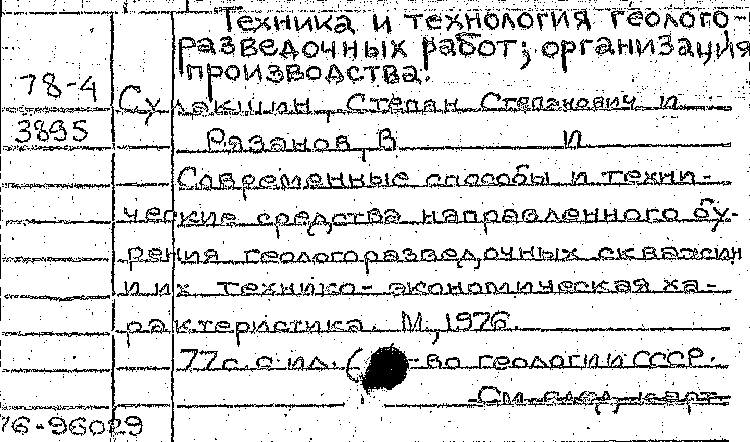 Техника и технология геолого-
разведочных работ; организация
производства.
78-4
Сулакшин, Степан Степанович и
3895
Рязанов, В И
Современные способы и техни-
ческие средства направленного бу-
рения геологоразведочных скважин
и их технико-экономическая ха-
рактеристика. М., 1976.
77 с. с ил. ( -во геологии СССР.
См. след. карт.
76-96029